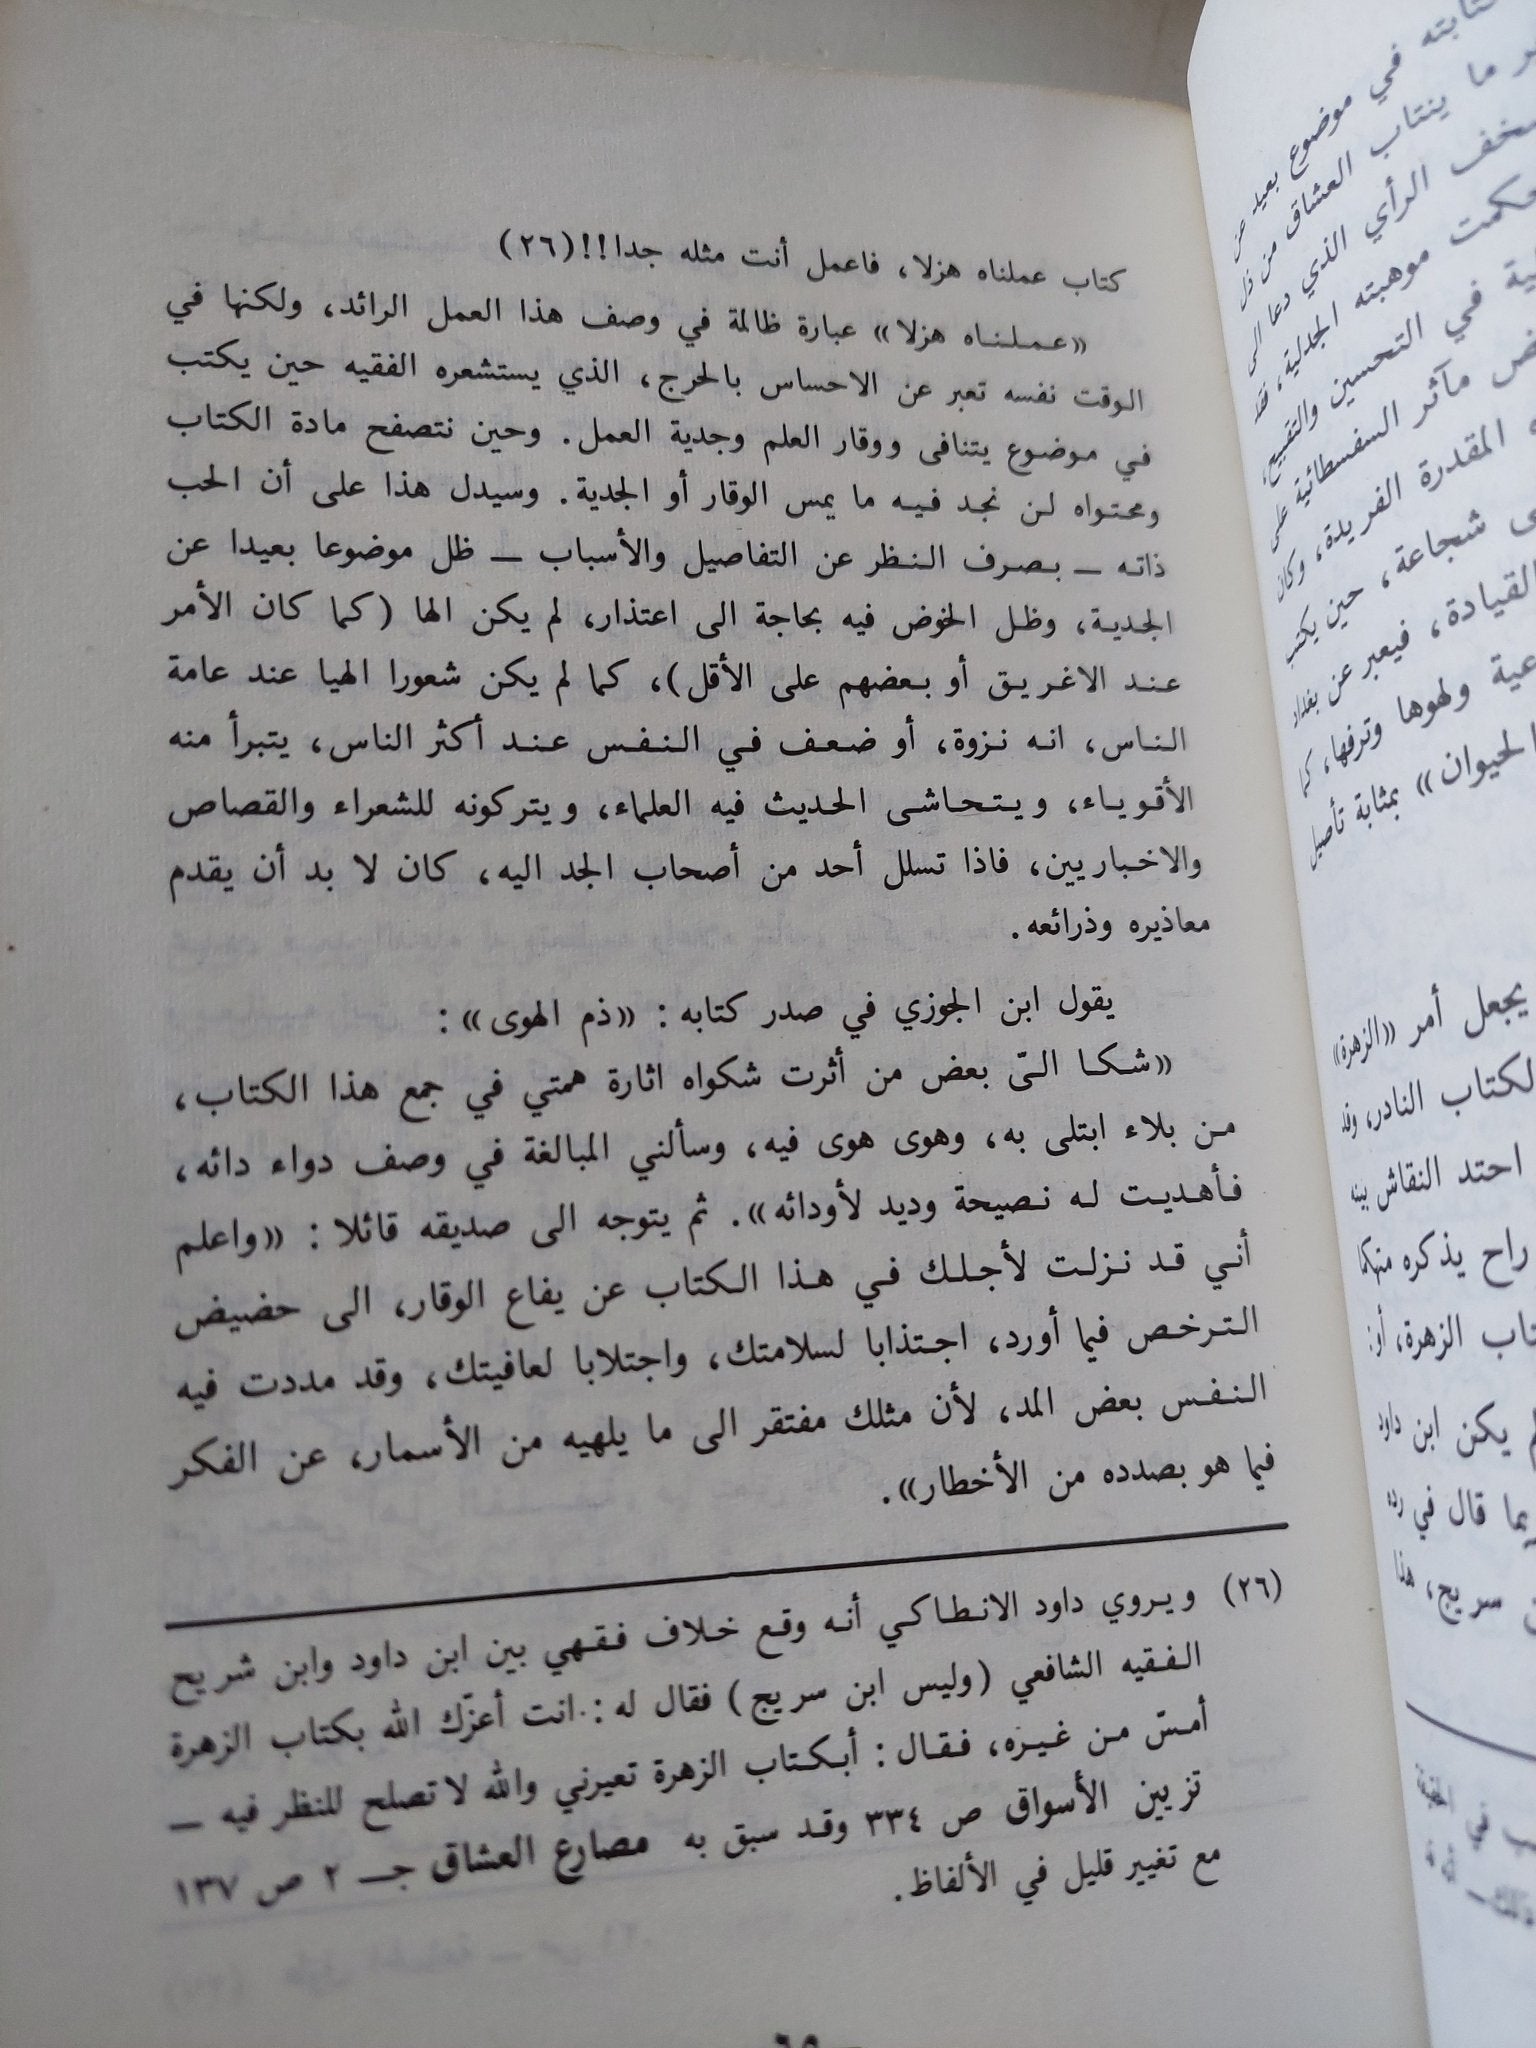 كتاب عملناه هزلا، فاعمل أنت مثله جدا!!(٢٦)
«عملناه هزلا» عبارة ظالمة في وصف هذا العمل الرائد، ولكنها في
الوقت نفسه تعبر عن الاحساس بالحرج، الذي يستشعره الفقيه حين يكتب
في موضوع يتنافى ووقار العلم وجدية العمل. وحين نتصفح مادة الكتاب
ومحتواه لن نجد فيه ما يمس الوقار أو الجدية. وسيدل هذا على أن الحب
ذاته ــ بصرف النظر عن التفاصيل والأسباب ــ ظل موضوعا بعيدا عن
الجدية، وظل الخوض فيه بحاجة الى اعتذار، لم يكن الها (كما كان الأمر
عند الاغريق أو بعضهم على الأقل)، كما لم يكن شعورا الهيا عند عامة
الناس، انه نزوة، أو ضعف في النفس عند أكثر الناس، يتبرأ منه
الأقوياء، ويتحاشى الحديث فيه العلماء، ويتركونه للشعراء والقصاص
والاخباريين، فاذا تسلل أحد من أصحاب الجد اليه، كان لا بد أن يقدم
معاذيره وذرائعه.
يقول ابن الجوزي في صدر كتابه: «ذم الهوى»:
«شكا الىّ بعض من أثرت شكواه اثارة همتي في جمع هذا الكتاب،
من بلاء ابتلى به، وهوى هوى فيه، وسألني المبالغة في وصف دواء دائه،
فأهديت له نصيحة وديد لأودائه». ثم يتوجه الى صديقه قائلا: «واعلم
أني قد نزلت لأجلك في هذا الكتاب عن يفاع الوقار، الى حضيض
الترخص فيما أورد، اجتذابا لسلامتك، واجتلابا لعافيتك، وقد مددت فيه
النفس بعض المد، لأن مثلك مفتقر الى ما يلهيه من الأسمار، عن الفكر
فيما هو بصدده من الأخطار».
(٢٦) ويروي داود الانطاكي أنه وقع خلاف فقهي بين ابن داود وابن شريح
الفقيه الشافعي (وليس ابن سريج) فقال له: انت أعزّك الله بكتاب الزهرة
أمسّ من غيره، فقال: أبكتاب الزهرة تعيرني والله لا تصلح للنظر فيه ــ
تزيين الأسواق ص ٣٣٤ وقد سبق به مصارع العشاق جـ ٢ ص ١٣٧
مع تغيير قليل في الألفاظ.
كتابته في موضوع بعيد عن
ما ينتاب العشاق من ذل
الرأي الذي دعا الى
موهبته الجدلية، فقد
في التحسين والتقبيح،
مآثر السفسطائية على
المقدرة الفريدة، وكان
شجاعة، حين يكتب
القيادة، فيعبر عن بغداد
ولهوها وترفها، كما
الحيوان» بمثابة تأصيل
يجعل أمر «الزهرة»
الكتاب النادر، وقد
احتد النقاش بينه
راح يذكره متهكما
الزهرة،
يكن ابن داود
بما قال في رده
سريج، هذا